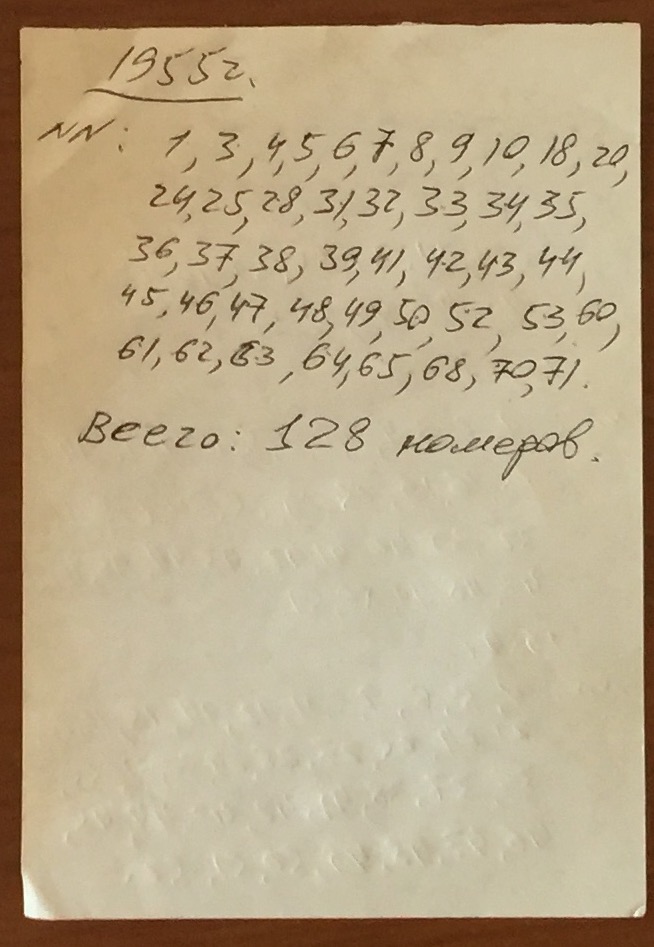 1955г.
NN: 1, 3, 4, 5, 6, 7, 8, 9, 10, 18, 20,
24, 25, 28, 31, 32, 33, 34, 35,
36, 37, 38, 39, 41, 42, 43, 44,
45, 46, 47, 48, 49, 50, 52, 53, 60,
61, 62, 63, 64, 65, 68, 70, 71.
Всего: 128 номеров.